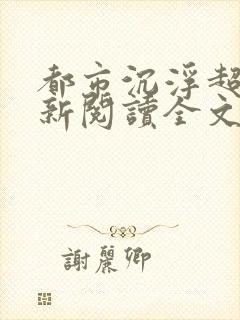 都市沉浮超
新閱讀全文
謝麗卿